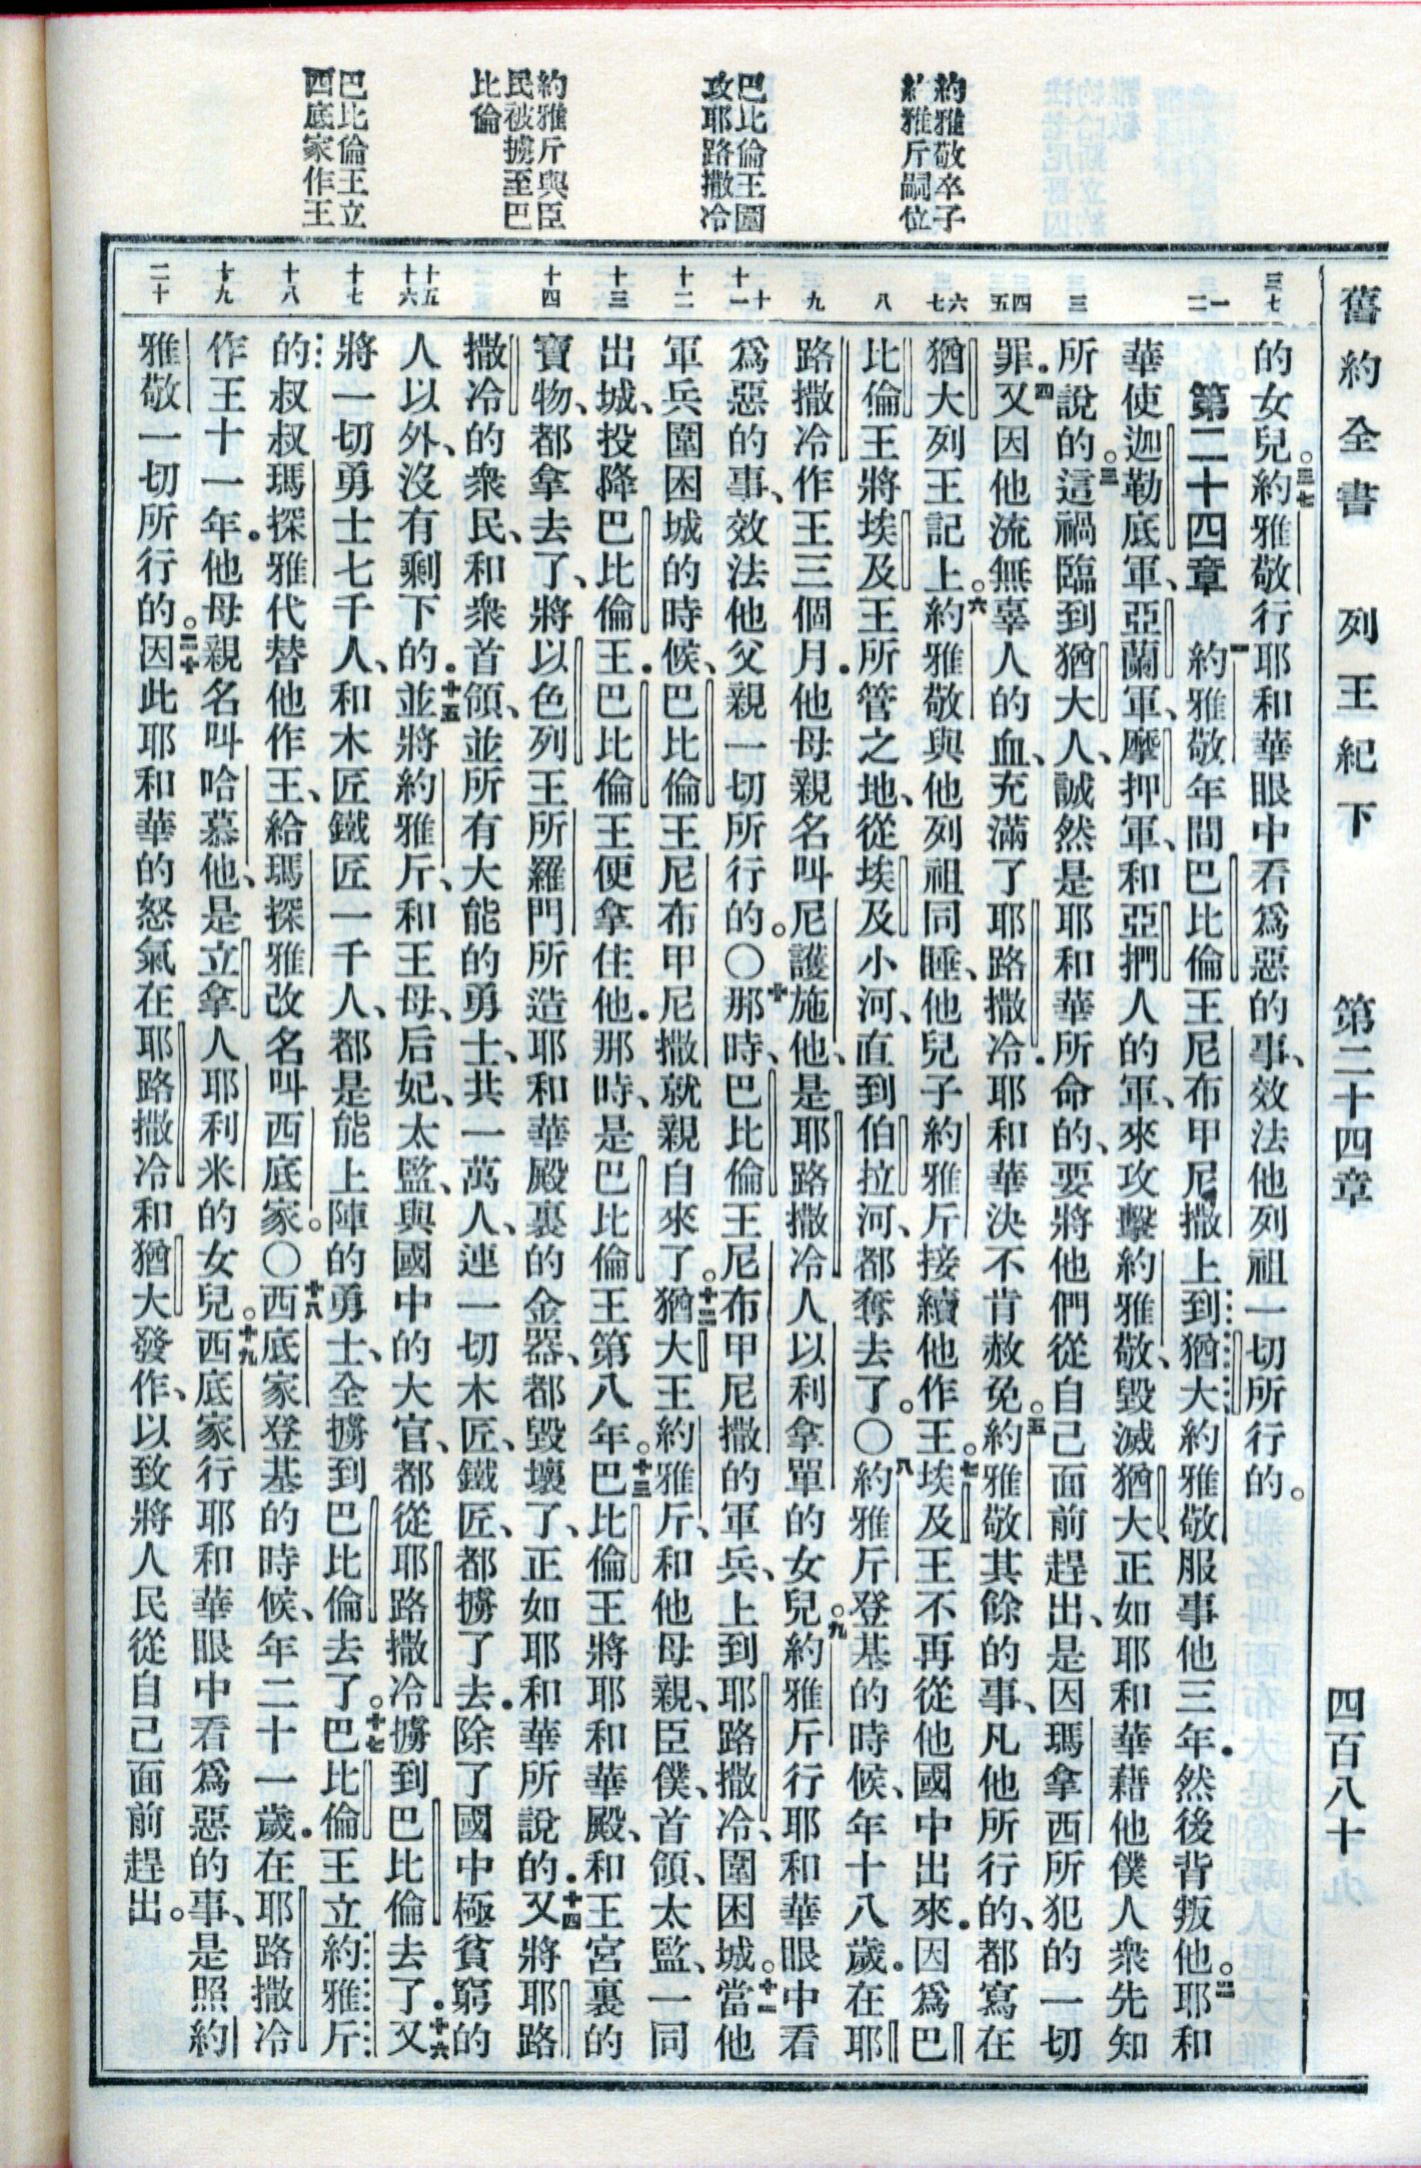 舊約全書　列王紀下　第二十四章　四百八十九
約雅敬卒子
約雅斤嗣位
巴比倫王圍
攻耶路撒冷
約雅斤與臣
民被擄至巴
比倫
巴比倫王立
西底家作王
三七
的女兒。三七約雅敬行耶和華眼中看爲惡的事、效法他列祖一切所行的。
一
二
第二十四章　一約雅敬年間巴比倫王尼布甲尼撒上到猶大約雅敬服事他三年．然後背叛他。二耶和
華使迦勒底軍、亞蘭軍、摩押軍、和亞捫人的軍、來攻擊約雅敬、毀滅猶大、正如耶和華藉他僕人衆先知
三
所說的。三這禍臨到猶大人、誠然是耶和華所命的、要將他們從自己面前趕出、是因瑪拿西所犯的一切
四
五
罪．四又因他流無辜人的血、充滿了耶路撒冷．耶和華決不肯赦免。五約雅敬其餘的事、凡他所行的、都寫在
六
七
猶大列王記上。六約雅敬與他列祖同睡、他兒子約雅斤接續他作王。七埃及王不再從他國中出來．因爲巴
八
比倫王將埃及王所管之地、從埃及小河、直到伯拉河、都奪去了。〇八約雅斤登基的時候、年十八歲．在耶
九
路撒冷作王三個月．他母親名叫尼護施他、是耶路撒冷人以利拿單的女兒。九約雅斤行耶和華眼中看
十
十一
爲惡的事、效法他父親一切所行的。〇十那時、巴比倫王尼布甲尼撒的軍兵、上到耶路撒冷、圍困城。十一當他
十二
軍兵圍困城的時候、巴比倫王尼布甲尼撒就親自來了。十二猶大王約雅斤、和他母親、臣僕、首領、太監、一同
十三
出城、投降巴比倫王．巴比倫王便拿住他．那時、是巴比倫王第八年。十三巴比倫王將耶和華殿、和王宮裏的
十四
寶物、都拿去了、將以色列王所羅門所造耶和華殿裏的金器、都毀壞了、正如耶和華所說的．十四又將耶路
撒冷的衆民、和衆首領、並所有大能的勇士、共一萬人、連一切木匠、鐵匠、都擄了去．除了國中極貧窮的
十五
十六
人以外、沒有剩下的．十五並將約雅斤、和王母、后妃、太監、與國中的大官、都從耶路撒冷擄到巴比倫去了．十六又
十七
將一切勇士七千人、和木匠鐵匠一千人、都是能上陣的勇士、全擄到巴比倫去了。十七巴比倫王立約雅斤
十八
的叔叔瑪探雅代替他作王、給瑪探雅改名叫西底家。〇十八西底家登基的時候、年二十一歲．在耶路撒冷
十九
作王十一年．他母親名叫哈慕他、是立拿人耶利米的女兒。十九西底家行耶和華眼中看爲惡的事、是照約
二十
雅敬一切所行的。二十因此耶和華的怒氣在耶路撒冷和猶大發作、以致將人民從自己面前趕出。